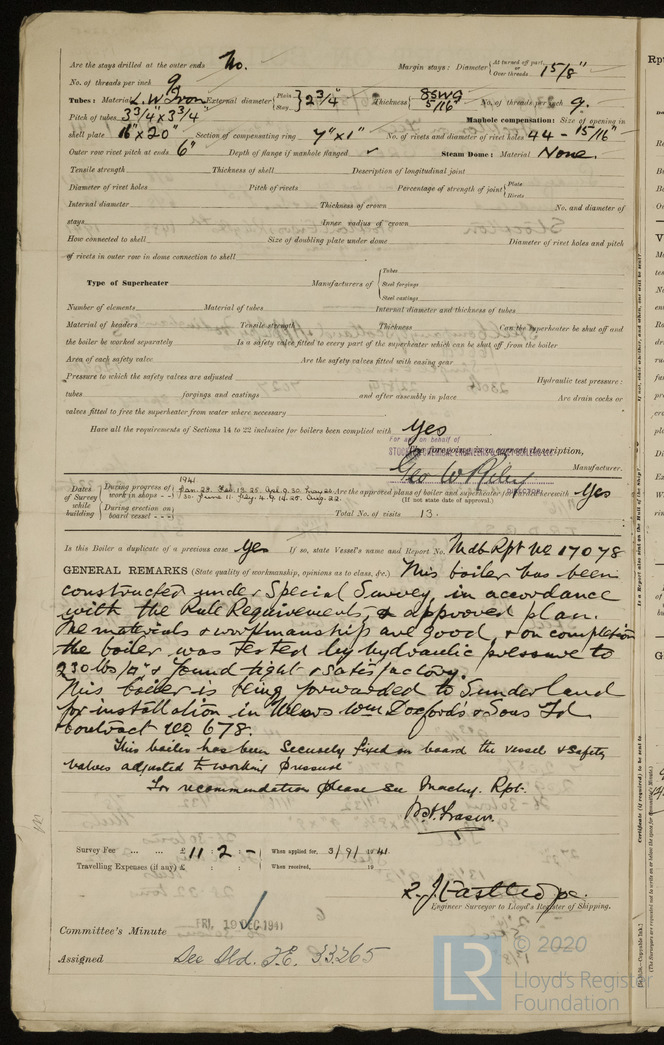 Are the stays drilled at the outer ends No. Margin stays: Diameter { At turned off part, or Over threads 1 5/8"
No. of threads per inch 9
Tubes: Material L.W. Iron External diameter { Plain Stay } 2 3/4" Thickness { 8 SWG 5/16" No. of threads per inch 9.
Pitch of tubes 3 3/4" x 3 3/4" Manhole compensation: Size of opening in
shell plate 16" x 20" Section of compensating ring 7" x 1" No. of rivets and diameter of rivet holes 44 - 15/16"
Outer row rivet pitch at ends 6" Depth of flange if manhole flanged ✓ Steam Dome: Material None.
Tensile strength Thickness of shell Description of longitudinal joint
Diameter of rivet holes Pitch of rivets Percentage of strength of joint { Plate Rivets
Internal diameter Thickness of crown No. and diameter of
stays Inner radius of crown
How connected to shell Size of doubling plate under dome Diameter of rivet holes and pitch
of rivets in outer row in dome connection to shell
Type of Superheater Manufacturers of { Tubes Steel forgings Steel castings
Number of elements Material of tubes Internal diameter and thickness of tubes
Material of headers Tensile strength Thickness Can the superheater be shut off and
the boiler be worked separately Is a safety valve fitted to every part of the superheater which can be shut off from the boiler
Area of each safety valve Are the safety valves fitted with easing gear
Pressure to which the safety valves are adjusted Hydraulic test pressure:
tubes forgings and castings and after assembly in place Are drain cocks or
valves fitted to free the superheater from water where necessary
Have all the requirements of Sections 14 to 22 inclusive for boilers been complied with Yes
For and on behalf of
The foregoing is a correct description,
Geo W Riley Manufacturer.
DIRECTOR
Dates of Survey while building { During progress of work in shops - - 1941 Jan. 29. Feb. 13. 25. Apl. 9. 30. May 26. 30. June 11. July. 4. 9. 14. 25. Aug. 22.
Are the approved plans of boiler and superheater forwarded herewith Yes
(If not state date of approval.)
During erection on board vessel - - - Total No. of visits 13.
Is this Boiler a duplicate of a previous case Yes If so, state Vessel's name and Report No. Mdb Rpt No 17078
GENERAL REMARKS (State quality of workmanship, opinions as to class, &c.) This boiler has been
constructed under Special Survey, in accordance
with the Rule Requirements & approved plan.
The materials & workmanship are good, & on completion
the boiler was tested by hydraulic pressure to
230 lbs/□" & found tight & satisfactory.
This boiler is being forwarded to Sunderland
for installation in Messrs Wm Doxford's & Sons Ld
contract No 678.
This boiler has been securely fixed on board the vessel & safety
valves adjusted to working pressure
For recommendation please see Machy. Rpt.
Survey Fee ... ... £ 11 : 2 : - When applied for, 3/9/1941
Travelling Expenses (if any) £ : : When received, 19
R. J. Easthope.
Engineer Surveyor to Lloyd's Register of Shipping.
Committee's Minute FRI. 10 DEC 1941
Assigned See Sld. F.E. 33265
© 2020
LR
Lloyd's Register
Foundation